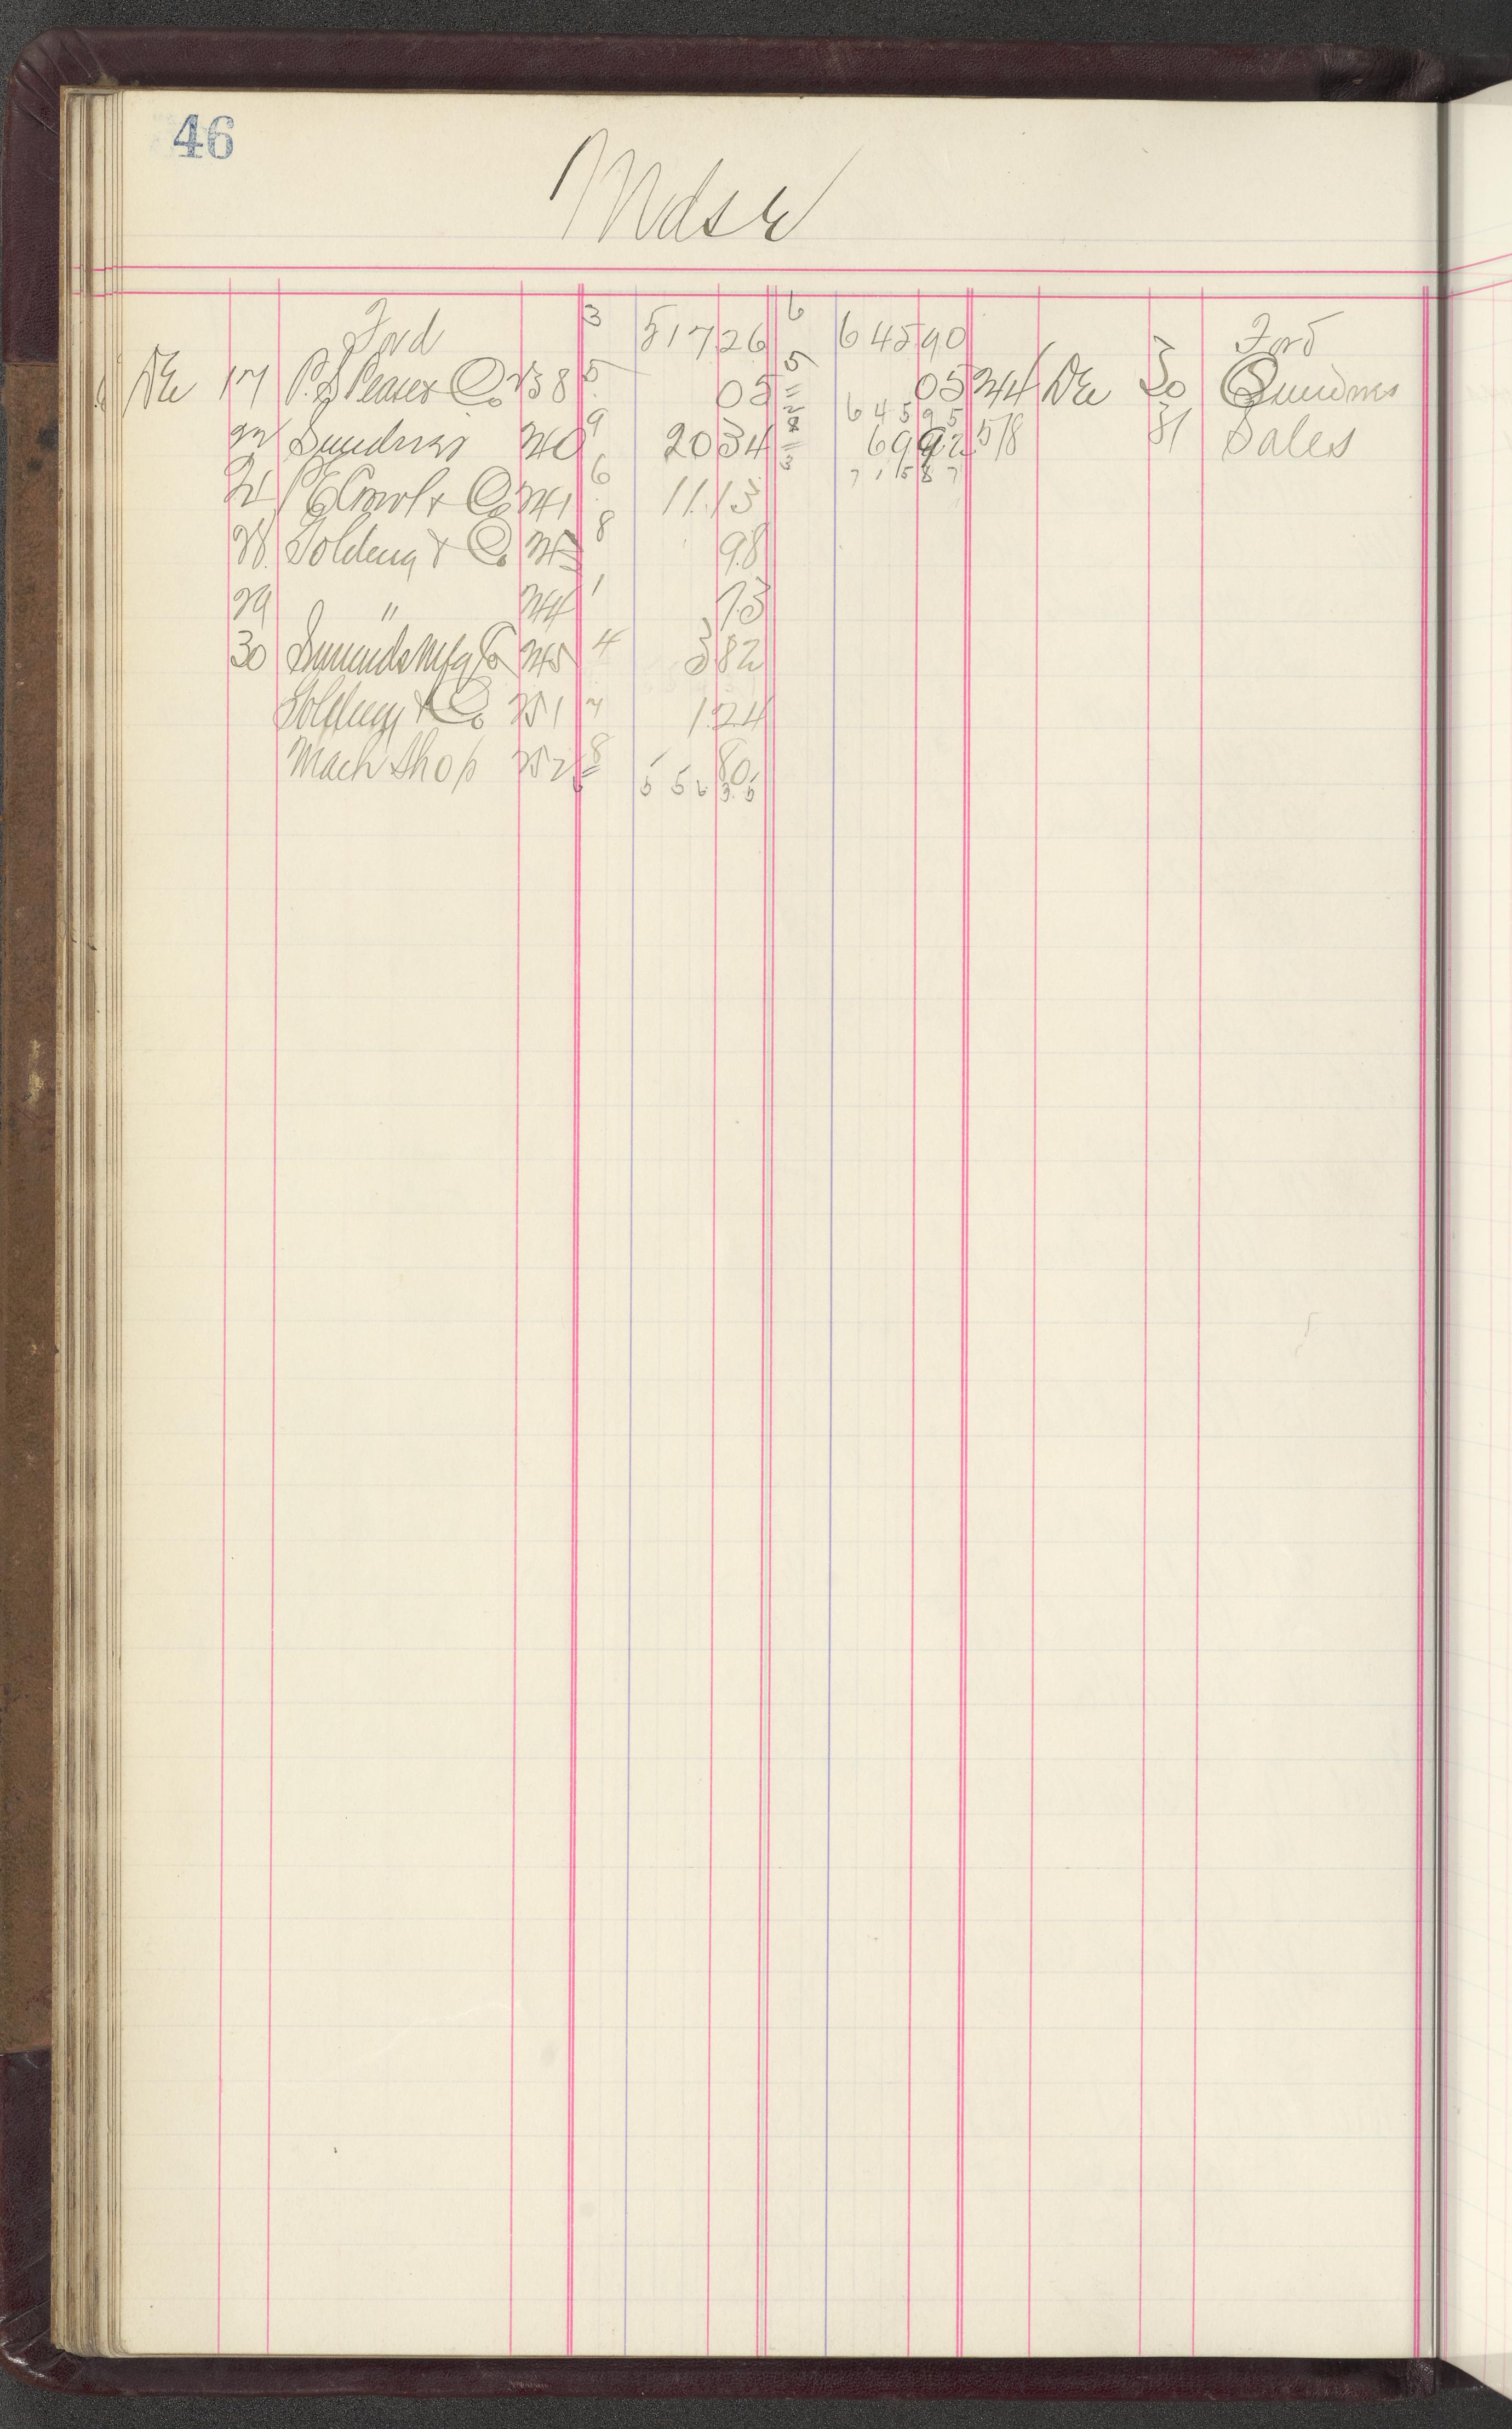 46
Mdse
Ford 3 517 26 6 645 90 Ford
De 17 P. S. Pease & Co 238 5 05 5 05 244 De 30 Sundries
6 4 5 9 5
22 Sundries 240 9 20 34 8 69 92 518 31 Sales
7 1 5 8 7
24 & Co 241 6 11 13
28 Golding & Co 243 8 98
29 " 244 1 73
30 Simonds Mfg Co 245 4 3 82
Golding & Co 251 7 1 24
Mach Shop 252 8 80
5 5 6 3 5